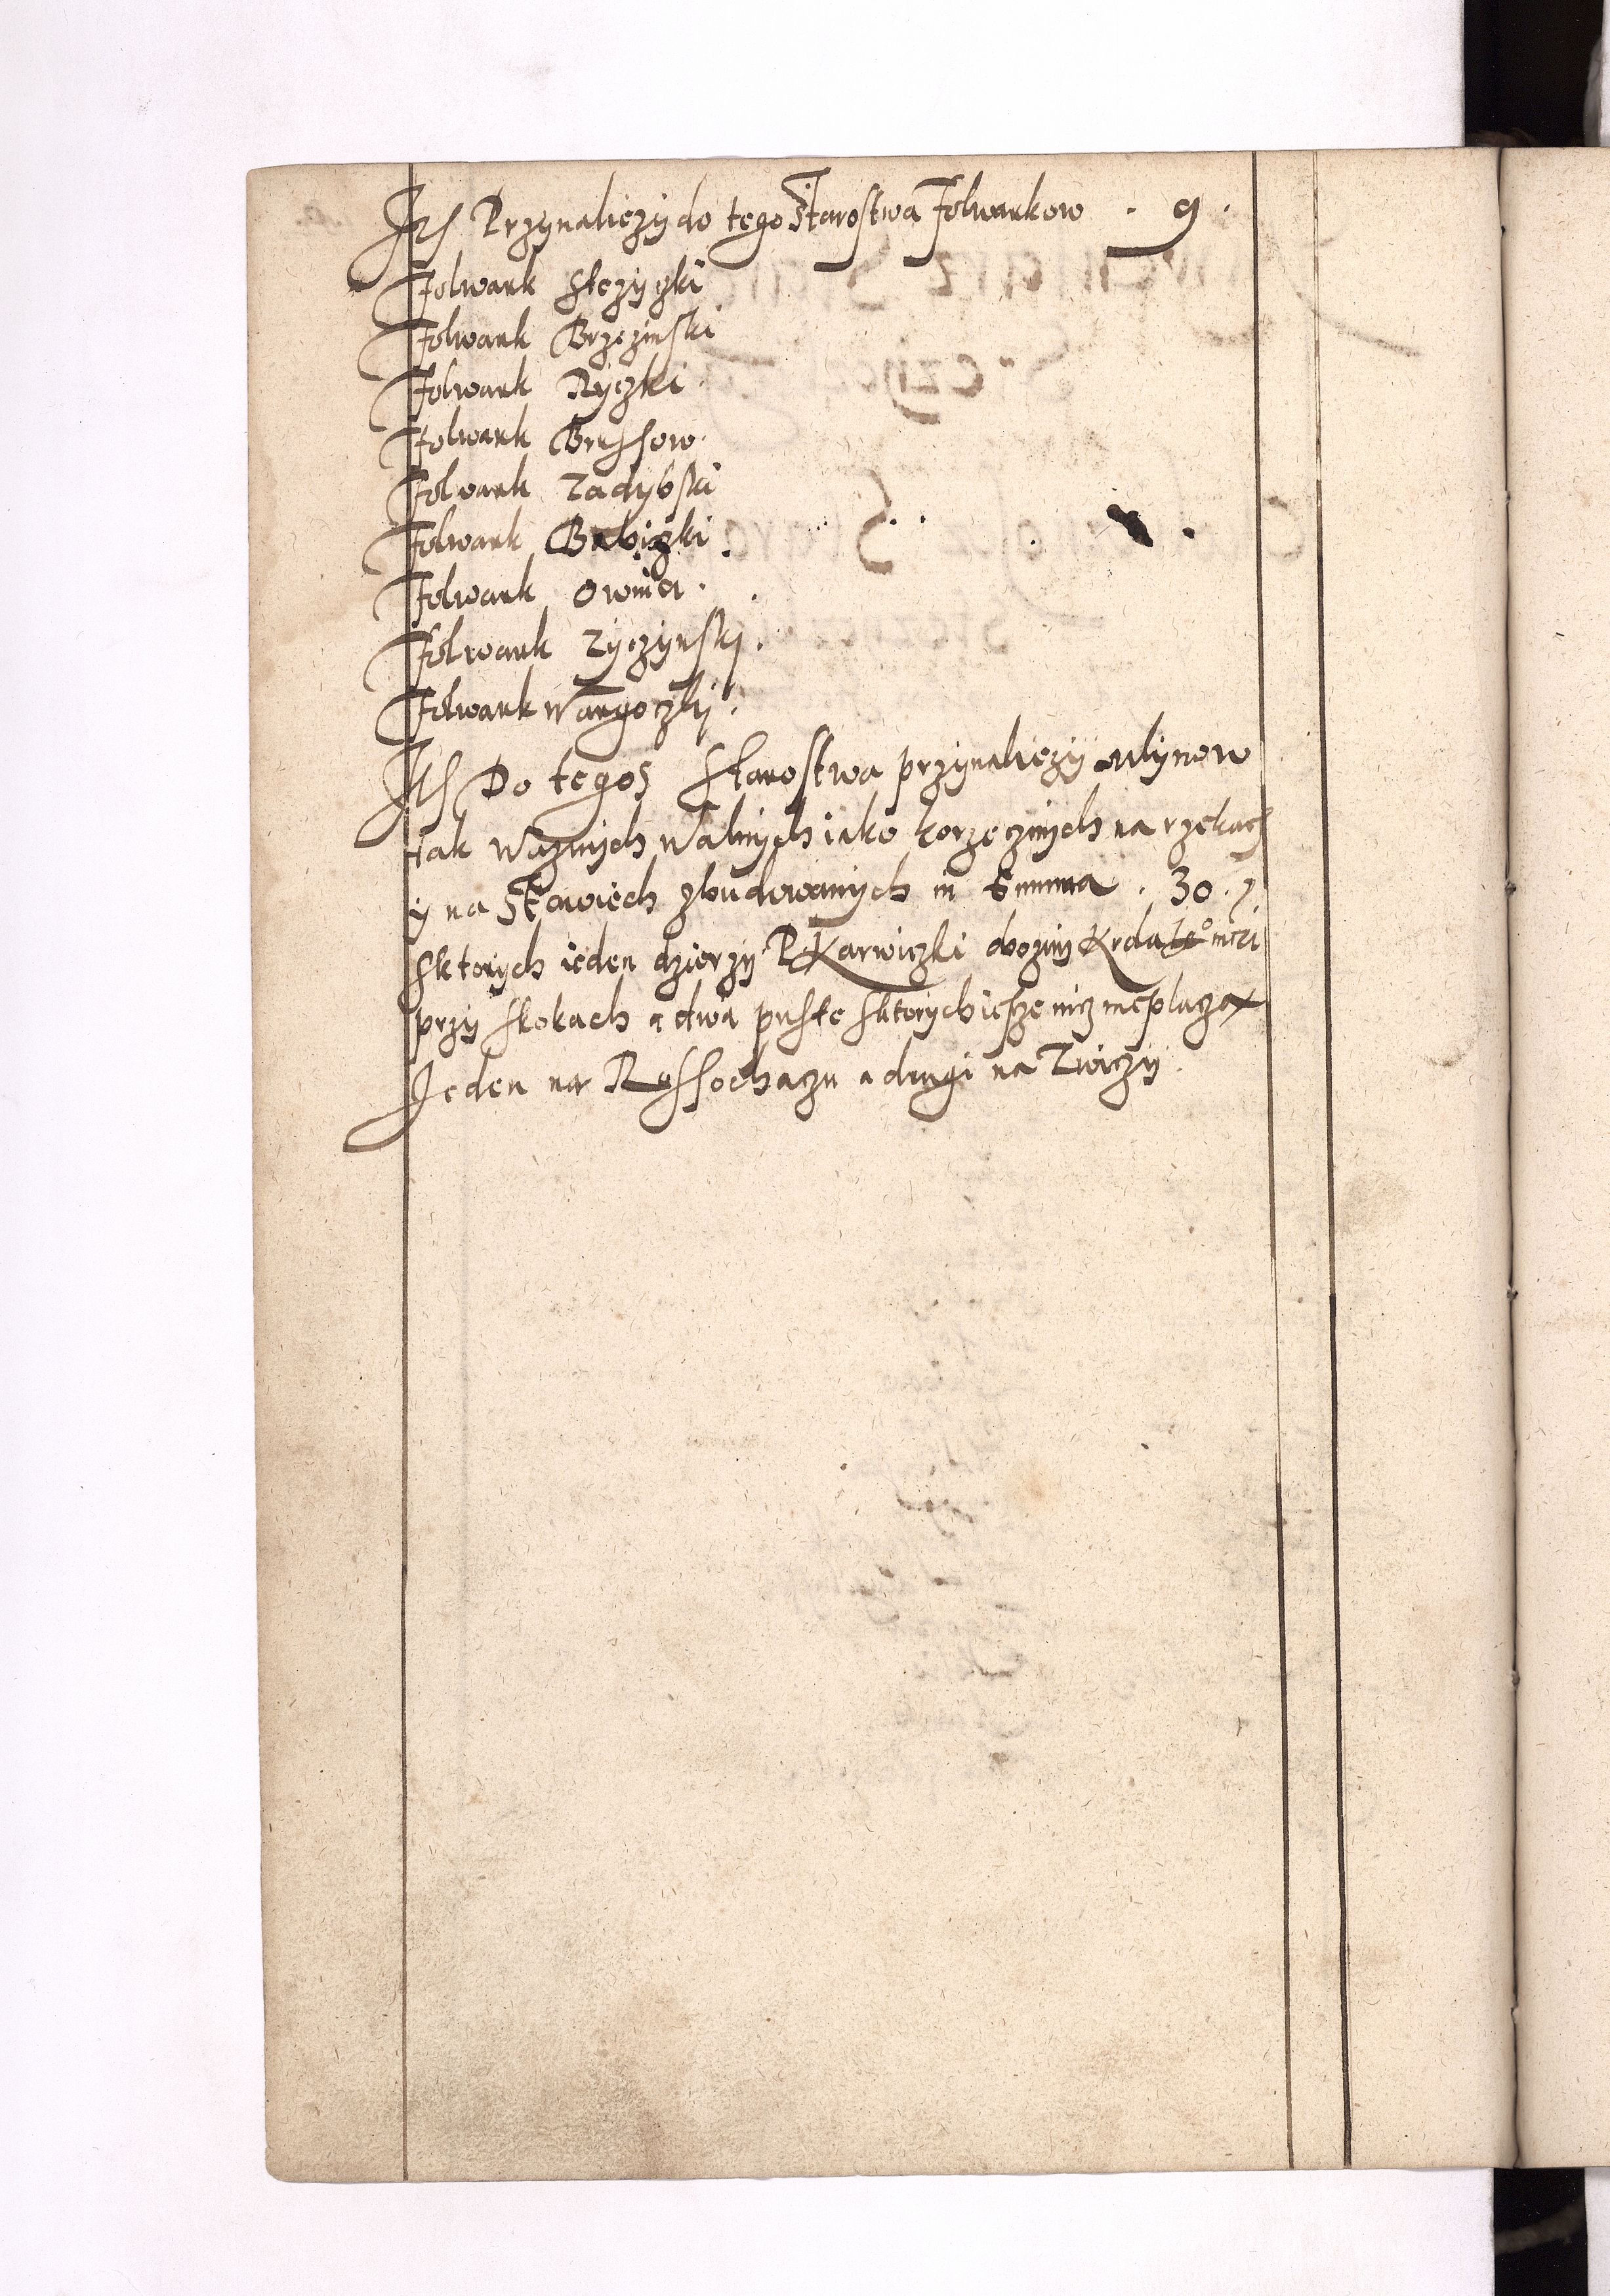 Itẽ Przynaliezy do tego Starostwa Folwarkow . 9 .
Folwark Stezyczki
Folwark Brzezinski
Folwark Ryczki .
Folwark Brussow .
Folwark Zadybski
Folwark Babiczki .
Folwark Ownia .
Folwark Zyczynski .
Folwark Wargoczki .
Itẽ Do tegoz Starostwa przynaliezy Mlynow
tak Waznych Walnych iako korzecznych na rzekach
y na Stawiech zbudowanych in Summa . 30 . 7
sktorych ieden dzierzy P Karwiczki
przy Skokach a dwa puste sktorych iesze nicz nieplacza
Jeden na Rossochaczu a drugi na Zwiczy .